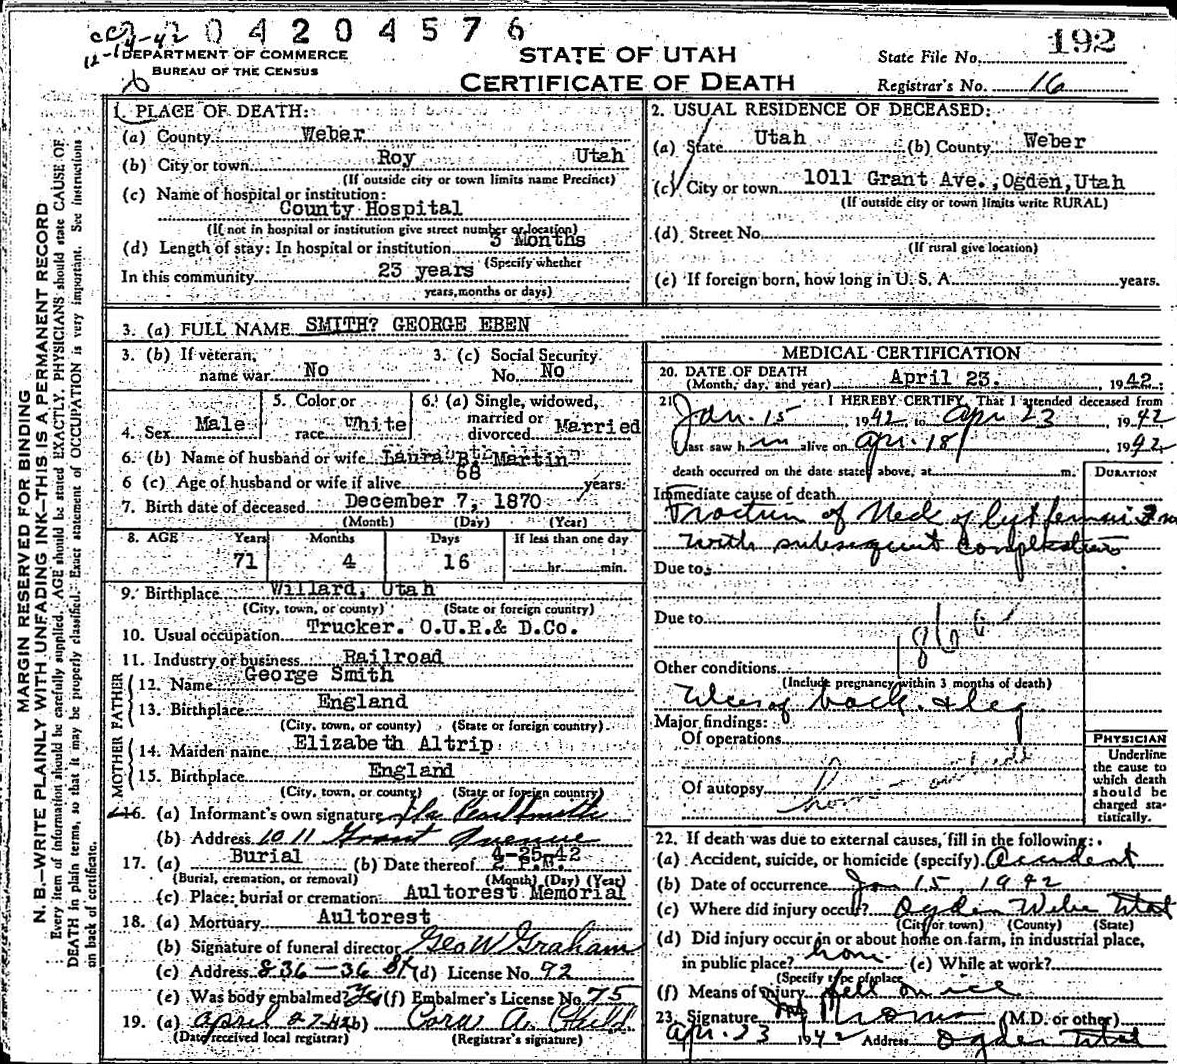 CC 7-42 0 4 2 0 4 5 7 6
192
DEPARTMENT OF COMMERCE
BUREAU OF THE CENSUS
STATE OF UTAH
CERTIFICATE OF DEATH
State File No.
Registrar's No. 16
MARGIN RESERVED FOR BINDING
N. B.—WRITE PLAINLY WITH UNFADING INK—THIS IS A PERMANENT RECORD
Every item of information should be carefully supplied. AGE should be stated EXACTLY. PHYSICIANS should state CAUSE OF
DEATH in plain terms, so that it may be properly classified. Exact statement of OCCUPATION is very important. See instructions
on back of certificate.
1. PLACE OF DEATH:
(a) County Weber
(b) City or town Roy Utah
(If outside city or town limits name Precinct)
(c) Name of hospital or institution:
County Hospital
(If not in hospital or institution give street number or location)
(d) Length of stay: In hospital or institution 3 Months
(Specify whether
In this community 23 years
years, months or days)
2. USUAL RESIDENCE OF DECEASED:
(a) State Utah (b) County Weber
(c) City or town 1011 Grant Ave.,Ogden,Utah
(If outside city or town limits write RURAL)
(d) Street No.
(If rural give location)
(e) If foreign born, how long in U. S. A. years.
3. (a) FULL NAME SMITH? GEORGE EBEN
3. (b) If veteran, name war No
3. (c) Social Security No. No
4. Sex Male
5. Color or race White
6. (a) Single, widowed, married or divorced Married
6. (b) Name of husband or wife Laura B. Martin
6 (c) Age of husband or wife if alive 68 years.
7. Birth date of deceased December 7, 1870
(Month) (Day) (Year)
8. AGE Years Months Days If less than one day
71 4 16 hr. min.
9. Birthplace Willard, Utah
(City, town, or county) (State or foreign country)
10. Usual occupation Trucker. O.U.R.& D.Co.
11. Industry or business Railroad
FATHER
12. Name George Smith
13. Birthplace England
(City, town, or county) (State or foreign country)
MOTHER
14. Maiden name Elizabeth Altrip
15. Birthplace England
(City, town, or county) (State or foreign country)
16. (a) Informant's own signature Pearl Smith
(b) Address 1011 Grant Avenue
17. (a) Burial (b) Date thereof 4-25-42 2 P.M.
(Burial, cremation, or removal) (Month) (Day) (Year)
(c) Place: burial or cremation Aultorest Memorial
18. (a) Mortuary Aultorest
(b) Signature of funeral director Geo W Graham
(c) Address 836-36 St (d) License No. 92
(e) Was body embalmed? Yes (f) Embalmer's License No. 75
19. (a) April 27-42 (b) Cora A. Child
(Date received local registrar) (Registrar's signature)
MEDICAL CERTIFICATION
20. DATE OF DEATH
(Month, day, and year) April 23. , 1942.
21. I HEREBY CERTIFY, That I attended deceased from
Jan. 15 1942 to Apr 23 1942
last saw h im alive on Apr. 18 1942
death occurred on the date stated above, at m.
DURATION
Immediate cause of death
Fracture of Neck of left femur
with subsequent complications
Due to
Due to
186
Other conditions
(Include pregnancy within 3 months of death)
Ulcers of back & leg
Major findings:
Of operations
Of autopsy
PHYSICIAN
Underline
the cause to
which death
should be
charged sta-
tistically.
22. If death was due to external causes, fill in the following:
(a) Accident, suicide, or homicide (specify) Accident
(b) Date of occurrence Jan 15, 1942
(c) Where did injury occur? Ogden Weber Utah
(City or town) (County) (State)
(d) Did injury occur in or about home on farm, in industrial place,
in public place? home (e) While at work?
(Specify type of place
(f) Means of injury fell on ice
23. Signature (M.D. or other)
Apr. 23 1942 Address Ogden Utah